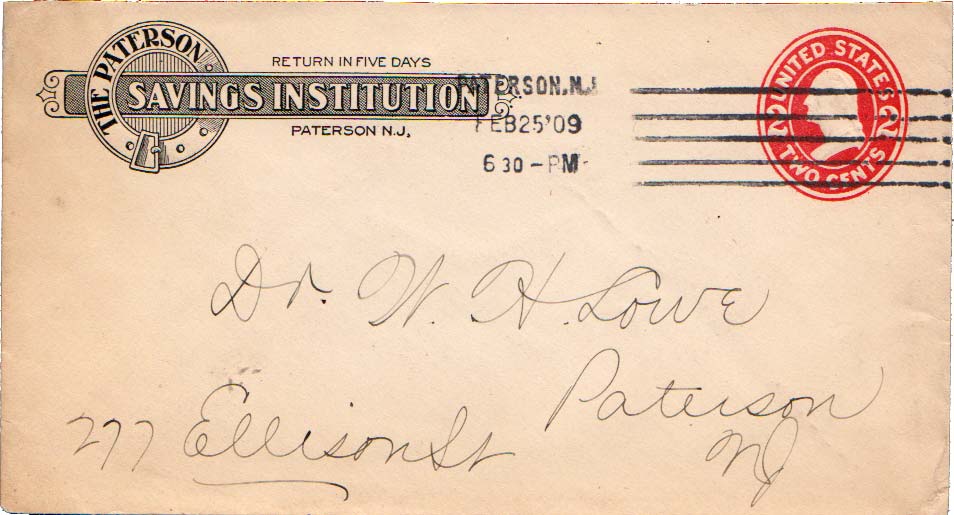 THE PATERSON
SAVINGS INSTITUTION
RETURN IN FIVE DAYS
PATERSON N.J.
PATERSON, N.J.
FEB 25 '09
6 30 - PM
UNITED STATES
2 2
TWO CENTS
Dr. W. H. Lowe
277 Ellison St
Paterson
NJ